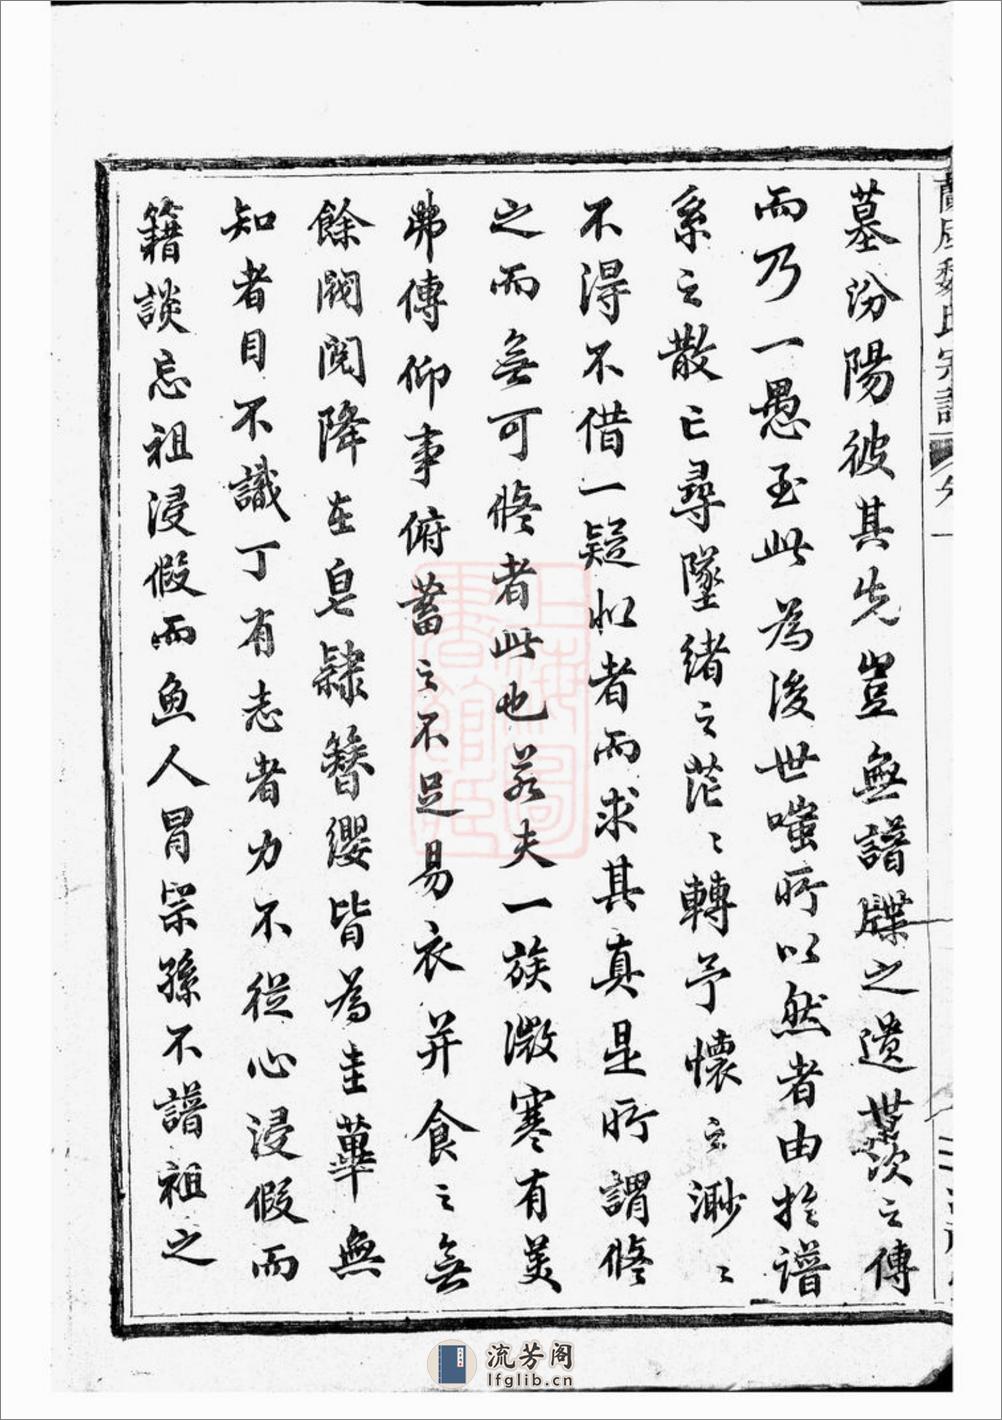 墓汾陽彼其先豈無譜牒之遺世茨之傳
而乃一愚至此為後世嗤所以然者由於譜
系之散亡尋墜緒之茫〻轉予懷之渺〻
不得不借一疑似者而求其真是所謂脩
之而無可脩者此也若夫一族微寒有美
弗傳仰事俯蓄之不足易衣并食之無
餘閥閱降在皂隸簪纓皆為圭蓽無
知者目不識丁有志者力不從心浸假而
籍談忘祖浸假而魚人冒宗孫不譜祖之
魏氏宗譜
上海圖書館藏
流芳阁
lfglib.cn